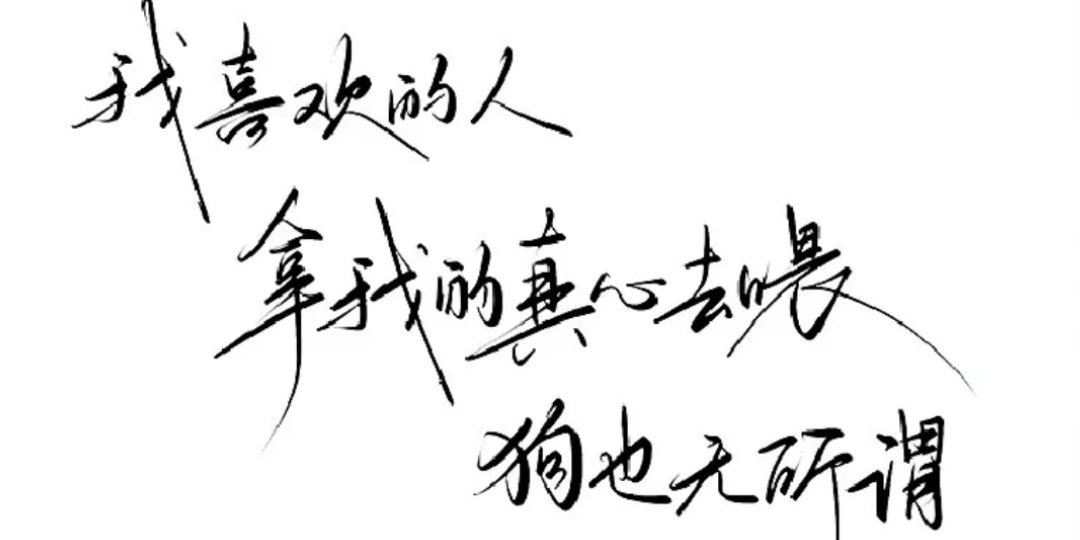 我喜欢的人
拿我的真心去喂
狗也无所谓